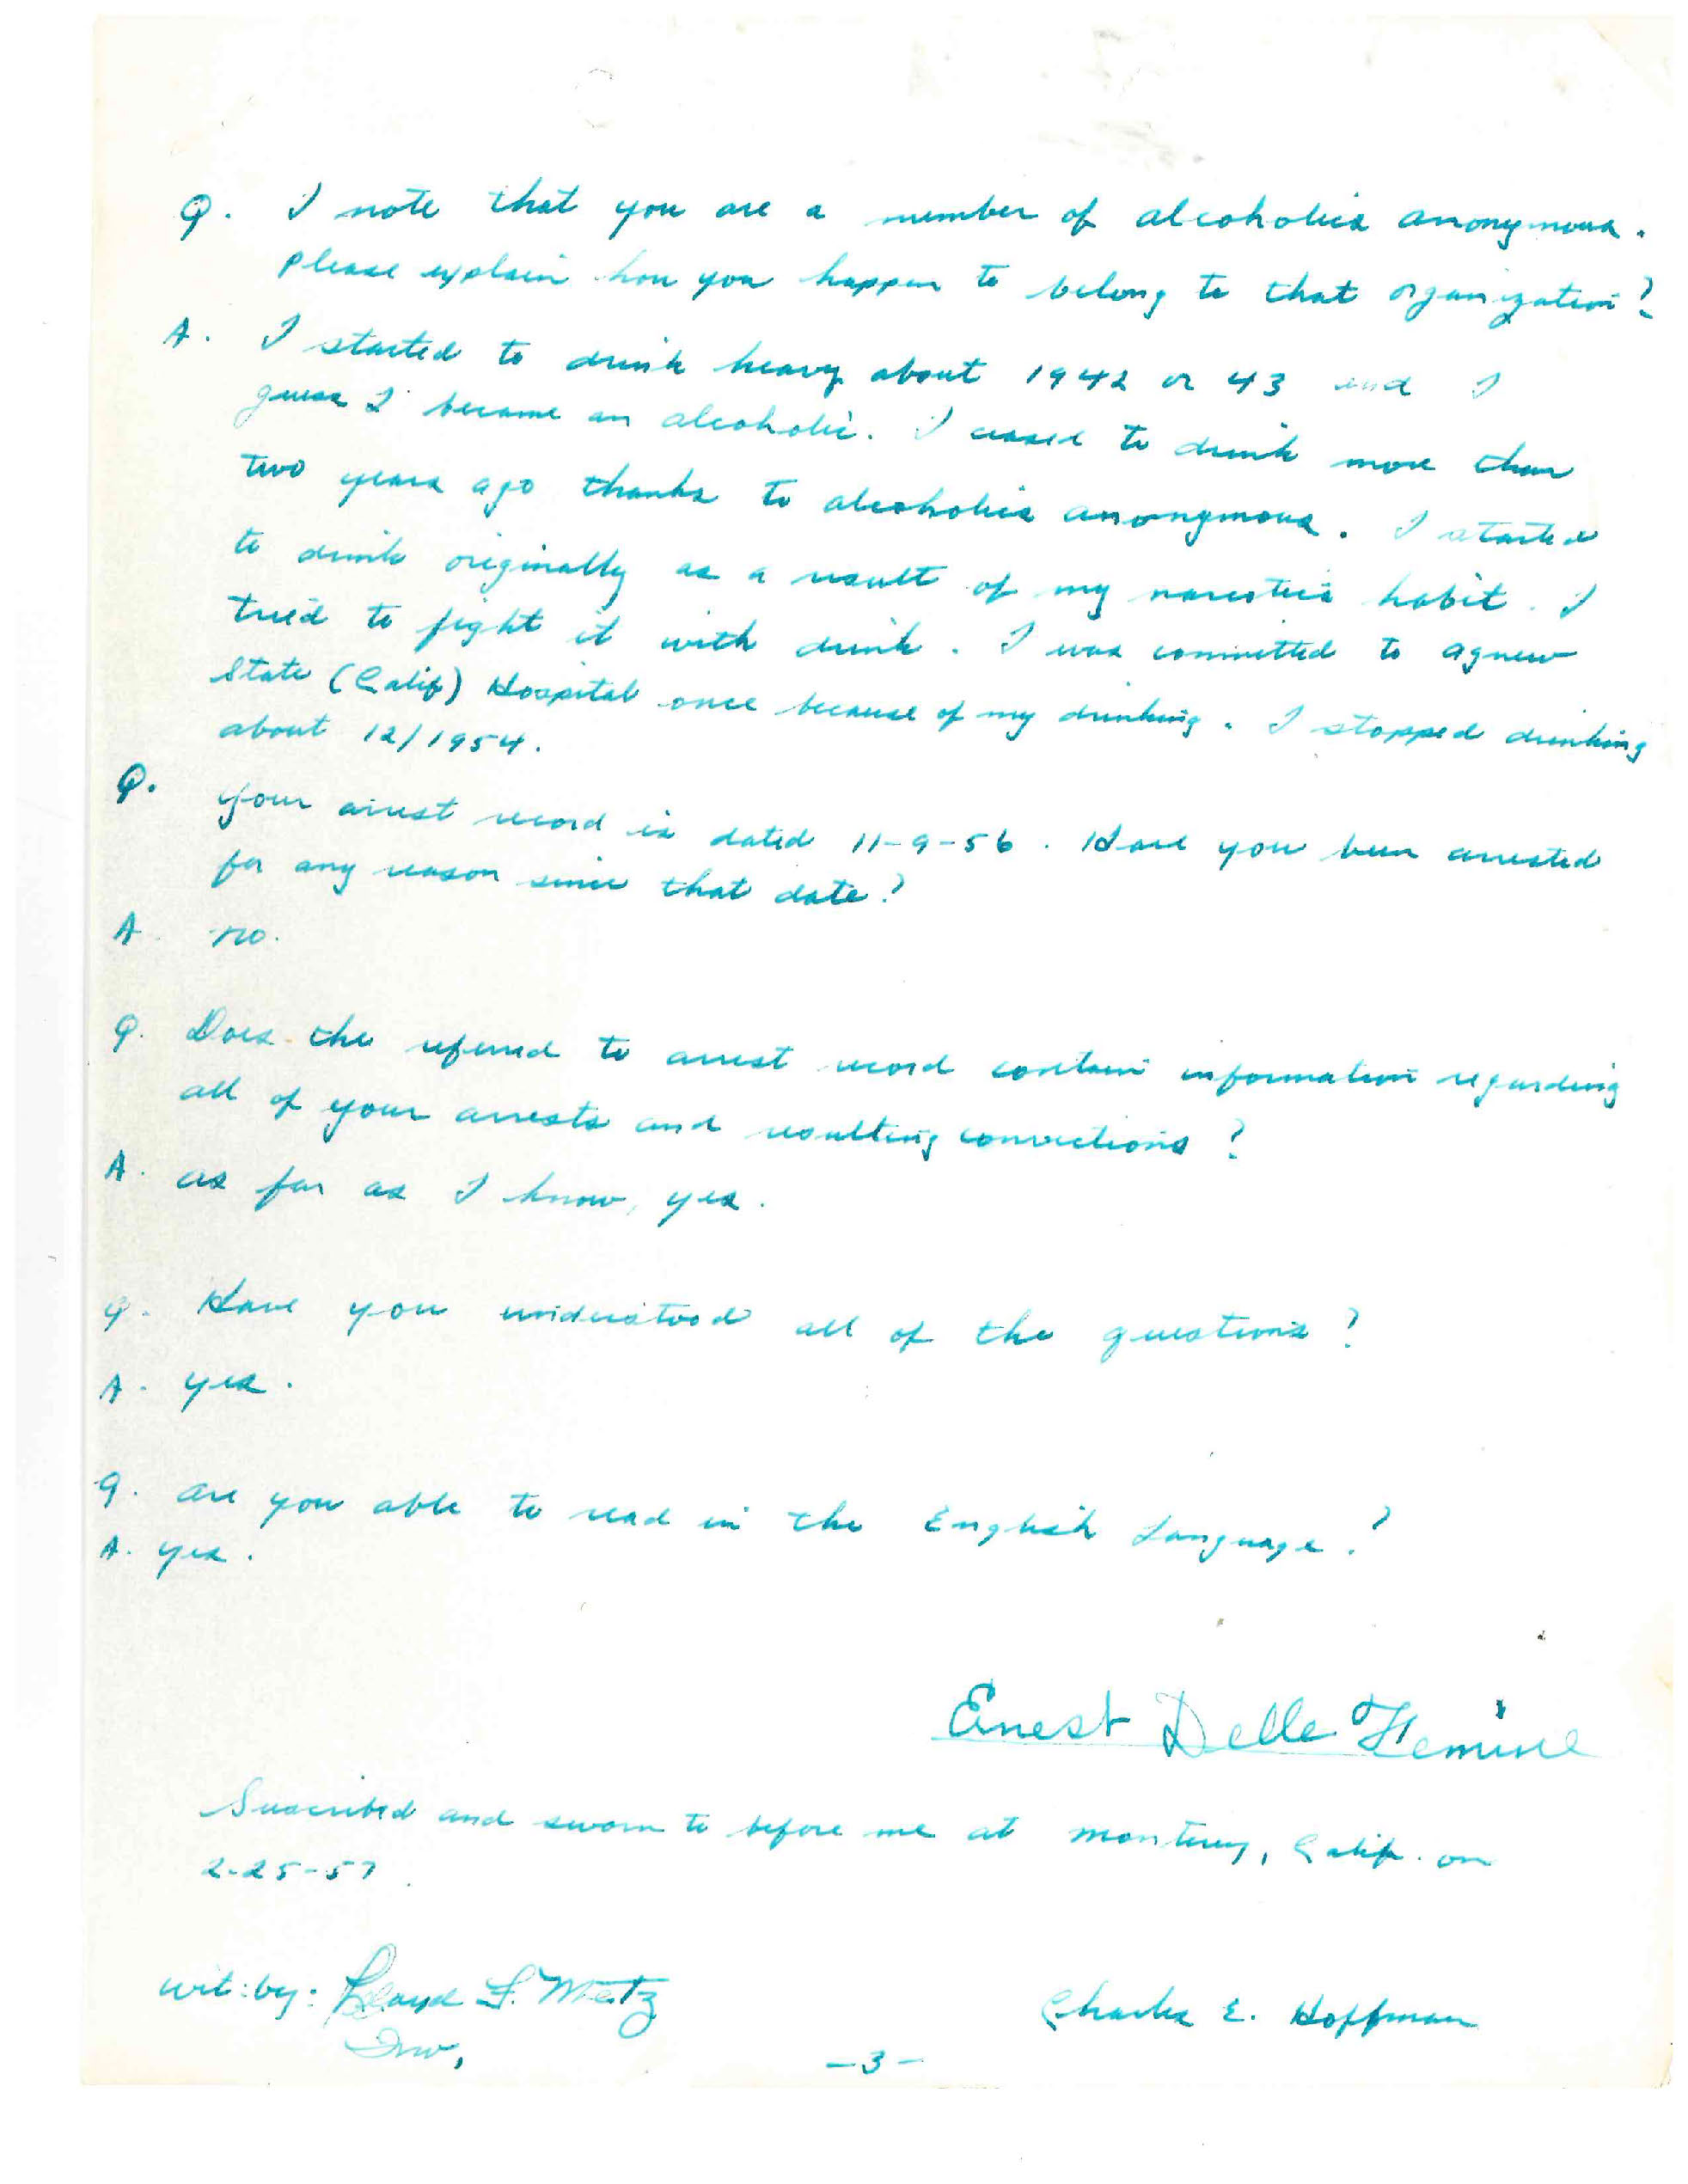 Q. I note that you are a member of alcoholics anonymous.
Please explain how you happen to belong to that organization?
A. I started to drink heavy about 1942 or 43 and I
guess I became an alcoholic. I ceased to drink more than
two years ago thanks to alcoholics anonymous. I started
to drink originally as a result of my narcotics habit. I
tried to fight it with drink. I was committed to agnew
State (Calif) Hospital once because of my drinking. I stopped drinking
about 12/1954.
Q. Your arrest record is dated 11-9-56. Have you been arrested
for any reason since that date?
A. no.
Q. Does the referred to arrest record contain information regarding
all of your arrests and resulting convictions?
A. as far as I know, yes.
Q. Have you understood all of the questions?
A. yes.
Q. are you able to read in the English Language?
A. yes.
Ernest Delle Femine
Suscribed and sworn to before me at monterey, Calif. on
2-25-57.
wit: by: Lloyd F. Metz
Inv.
Charles E. Hoffman
-3-